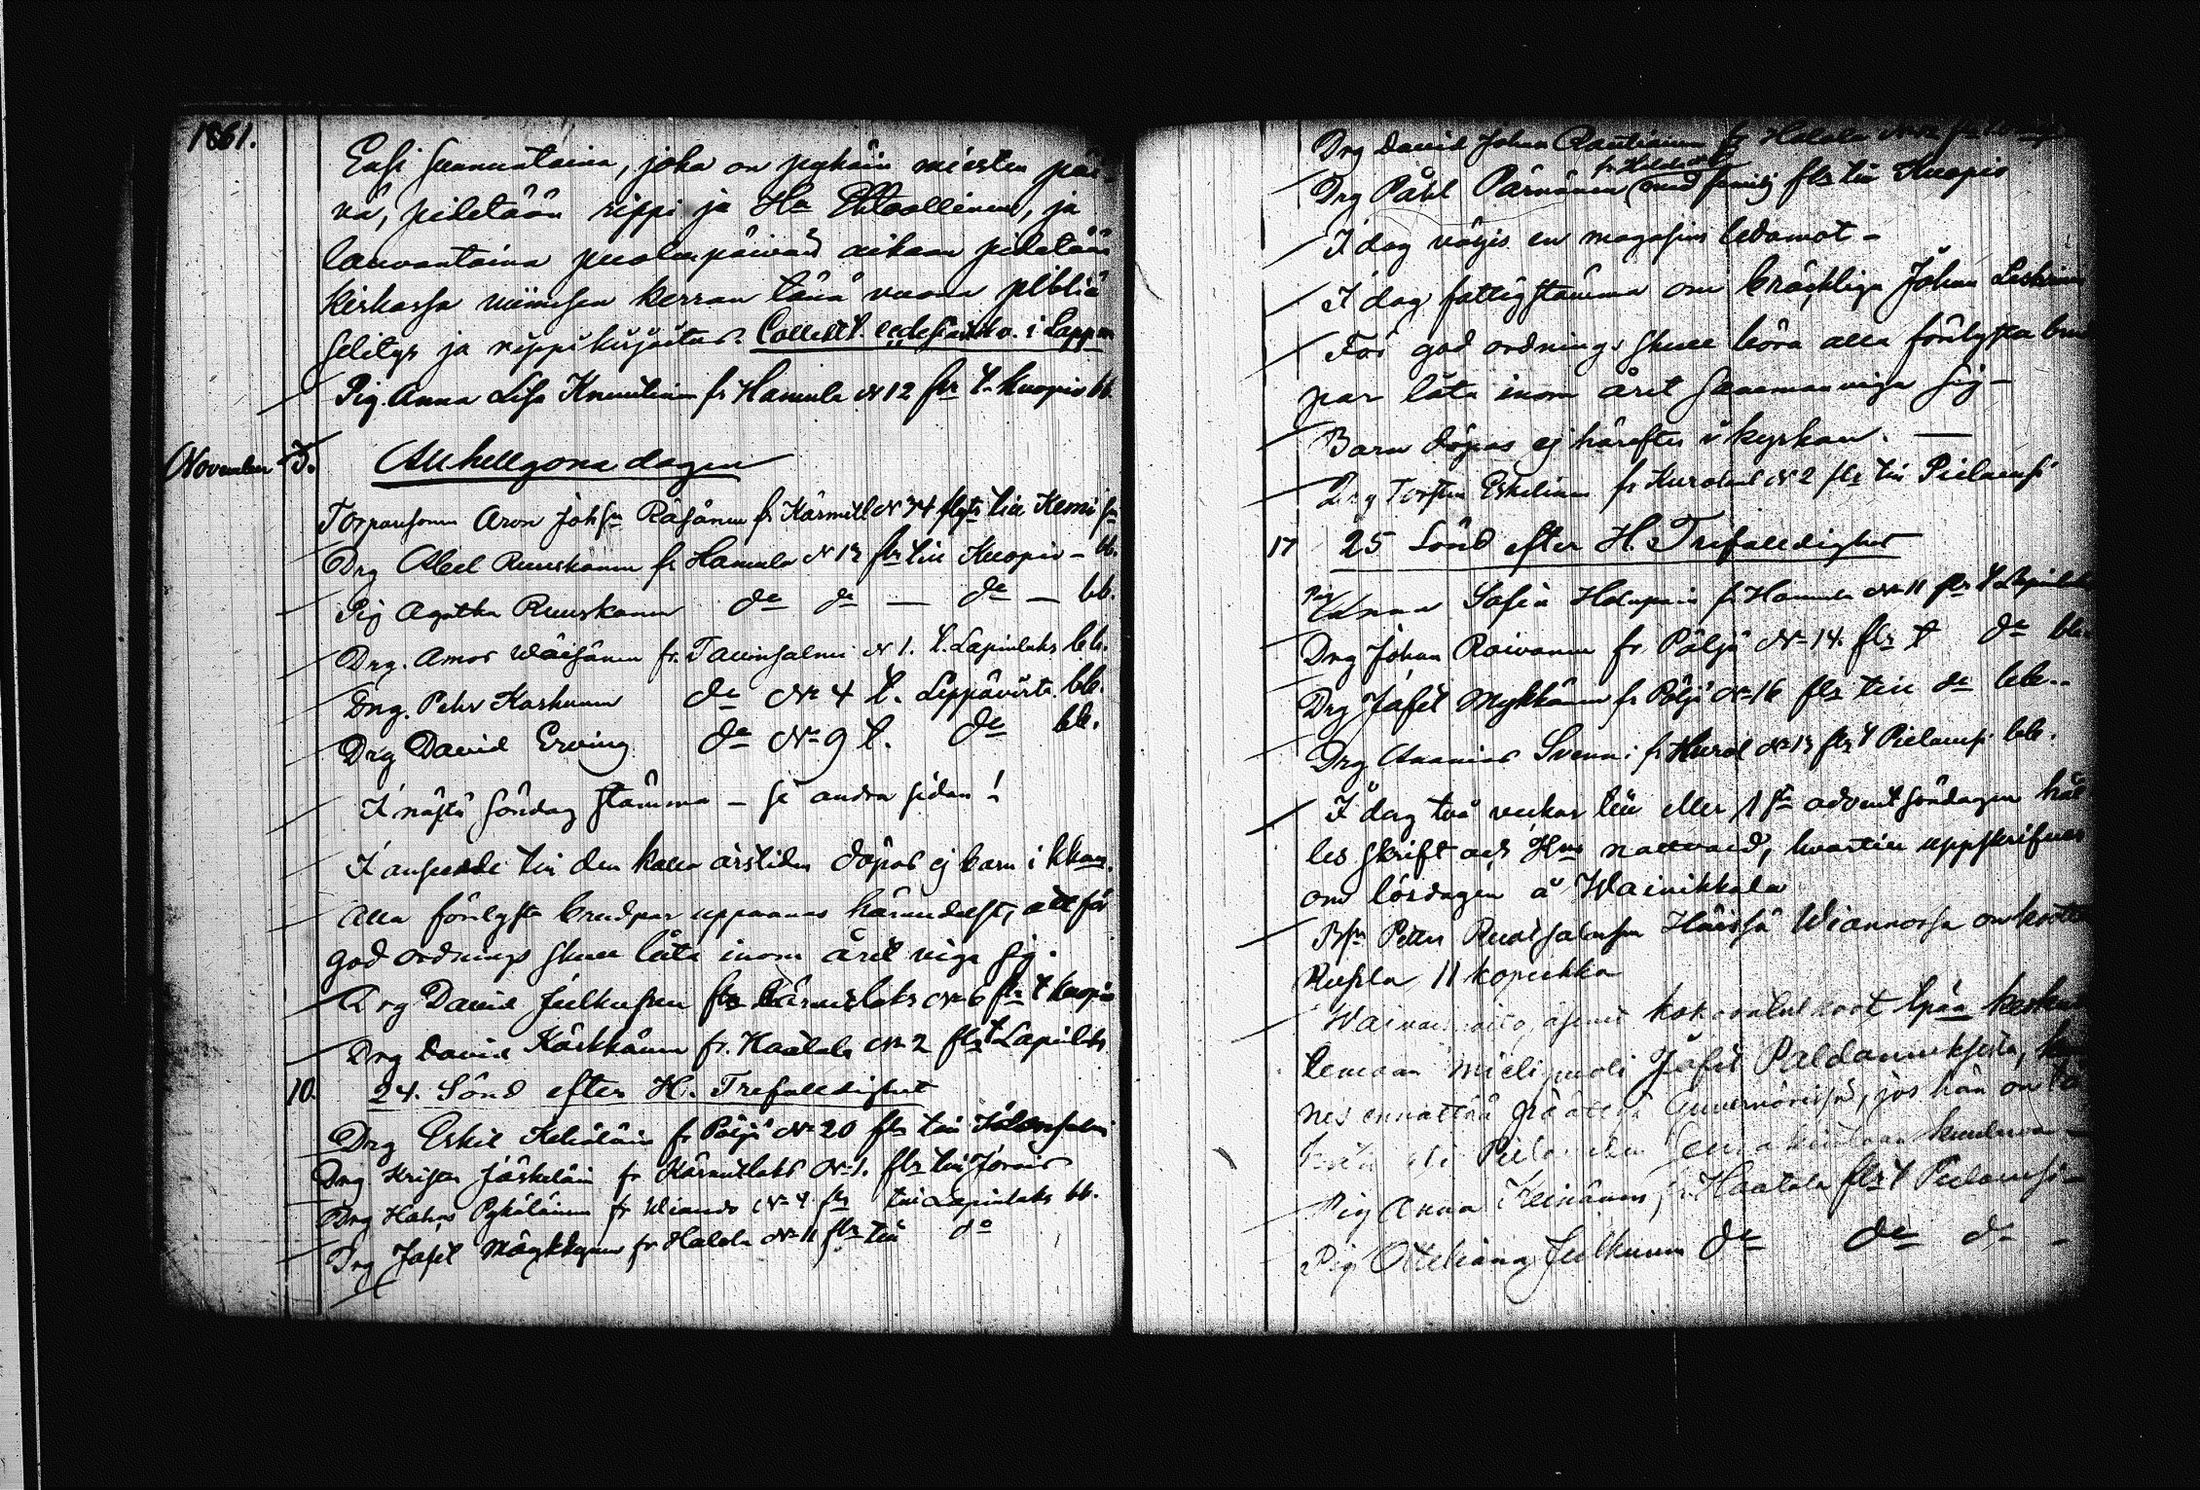 1861.
Ensi sunnuntaina, joka on pyhäin miesten päi-
vä, pidetään rippi ja Hn Ehtoollinen, ja
lauvantaina puolenpäivän aikaan pidetään
kirkossa viimisen kerran tänä vuona piblia
selitys ja rippikirjoitus. Collekt. i Lappm
Pig. Anna Lisa Knuutinen fr Hamula N 12 flr t. Kuopio bb.
November 3. Allhelgona dagen
Torparsonen Aron Johsn Räsänen fr Kärmill N 34 flytt till Kemi sn
Drg Abel Ruuskanen fr Hamula N 13 flr till Kuopio - bb.
Pig Agatha Ruuskanen do do — do — bb.
Drg. Amos Wäisänen fr. Tavinsalmi N 1. t. Lapinlaks bb.
Drg. Pehr Koskunen do No 4 t. Leppävirta bb.
Drg David Erving do No 9 t. do bb.
I nästa söndag stämma - se andra sidan!
I anseende till den kalla årstiden döpas ej barn i kkan.
Alla förelysta brudpar uppmanas härmedelst, att för
god ordnings skull låta inom året viga sig.
Drg David Julkunen fr Kärmelaks No 6 flr t Kuopio
Drg David Kärkkäinen fr. Haatala No 2 flr t Lapinlaks
10. 24. Sönd efter H. Trefaldighet
Drg Eskil Keläläin fr Pöljä No 20 flr till Idensalmi
Drg Krister Jäskeläin fr Kärmtlaks No 1. flr till Jorois
Drg Hahns Pykäläinen fr Wiando No 4 flr till Lapinlaks bb.
Drg Jafet Mäykkynen fr Halola No 11 flr till do
Drg David Johan Rautiainen fr Halola
Drg Påhl Pärnänen med familj flr till Kuopio
I dag väljes en magasins ledamot -
I dag fattigstämma om bräcklige Johan Leskinen
För god ordnings skull böra alla förelysta brud
par låta inom året sammanviga sig -
Barn döpas ej härefter i kyrkan. —
Drg Torsten Eskelinen fr Kurolaks N 2 flr till Pielavesi
17 25 Sönd efter H. Trefaldighet
Pig Anna Sofia Holopain fr Hamula No 11 flr t Lapinlaks
Drg Johan Roivanen fr Pöljä No 14. flr t do bb.
Drg Jafet Mykkänen fr Pöljä No 16 flr till do bb.
Drg Ananias Svenn: fr Kurol No 13 flr t Pielavesi bb.
I dag två veckor till eller 1sta advent söndagen hål
les skrift och Hns nattvard, hvartill uppskrifves
om lördagen å Wainikkala
Petter Ruotsalaisen Häissä Wiannossa on koottu
Rupla 11 kopeikka
kokoontuvat
lemaan mielipuoli Jafet Paldaniuksesta,
jos hän on
Pig Anna Keinänen fr Haatala flr t Pielavesi -
Pig Otteliana Julkunen do do do -